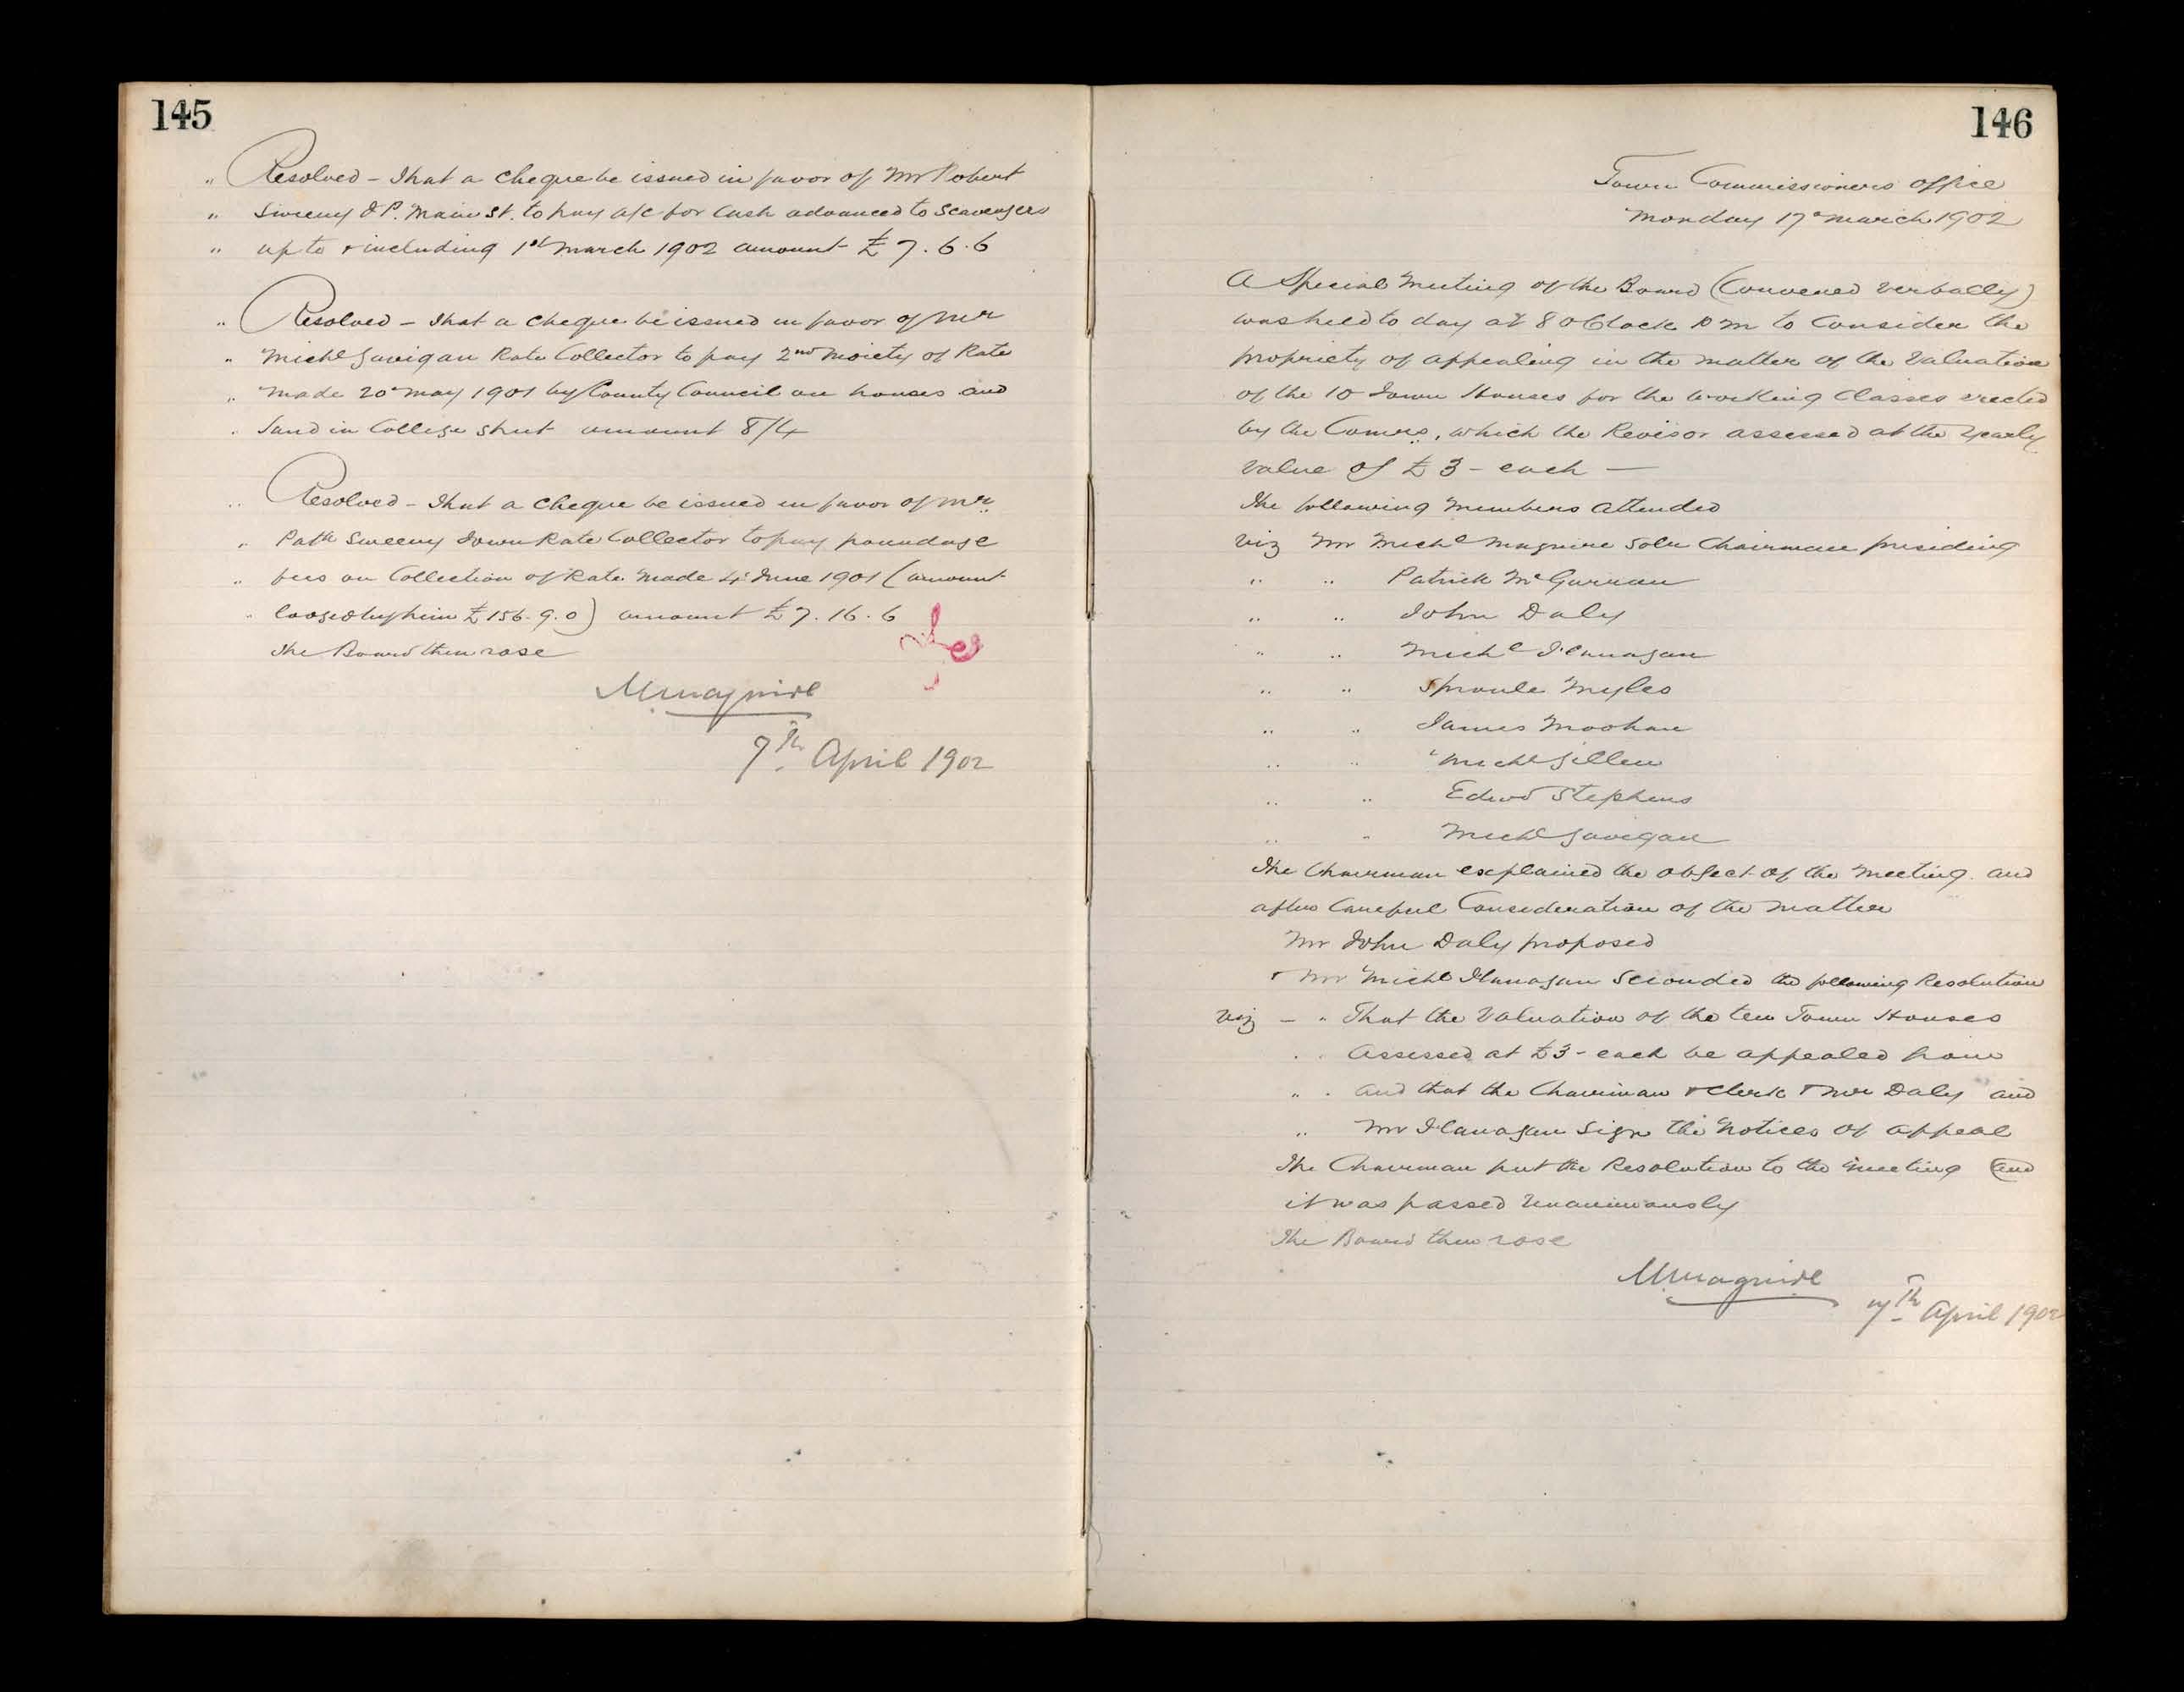 145
" Resolved – That a cheque be issued in favor of Mr Robert
" Sweeny J.P. Main St. to pay a/c for Cash advanced to Scavengers
" up to & including 1st March 1902 amount £7.6.6
" Resolved – That a cheque be issued in favor of Mr
" Michl Gavigan Rate Collector to pay 2nd Moiety of Rate
" Made 20th May 1901 by County Council on houses and
" Land in College Street amount 8/4
" Resolved – That a cheque be issued in favor of Mr
" Patk Sweeny Town Rate Collector to pay poundage
" fees on Collection of Rate Made 4th June 1901 (amount
" Lodged by him £156.9.0) amount £7.16.6
The Board then rose
MMaguire
7th April 1902
146
Town Commissioners office
Monday 17th March 1902
A Special Meeting of the Board (Convened verbally)
was held to day at 8 oClock P M to Consider the
propriety of appealing in the matter of the Valuation
of the 10 Town Houses for the Working Classes erected
by the Comrs, which the Revisor assessed at the yearly
value of £3 – each —
The following Members attended
viz Mr Michl Maguire Solr Chairman presiding
" " Patrick McGurran
" " John Daly
" " Michl Flanagan
" " Sproule Myles
" " James Moohan
" " Michl Gillen
" " Edwd Stephens
" " Michl Gavigan
The Chairman explained the object of the Meeting and
after Careful Consideration of the matter
Mr John Daly proposed
& Mr Michl Flanagan Seconded the following Resolution
viz – " That the Valuation of the ten Town Houses
" " Assessed at £3 – each be appealed from
" " And that the Chairman & Clerk & Mr Daly and
" Mr Flanagan Sign the Notices of Appeal
The Chairman put the Resolution to the Meeting and
it was passed Unanimously
The Board then rose
MMaguire
7th April 1902